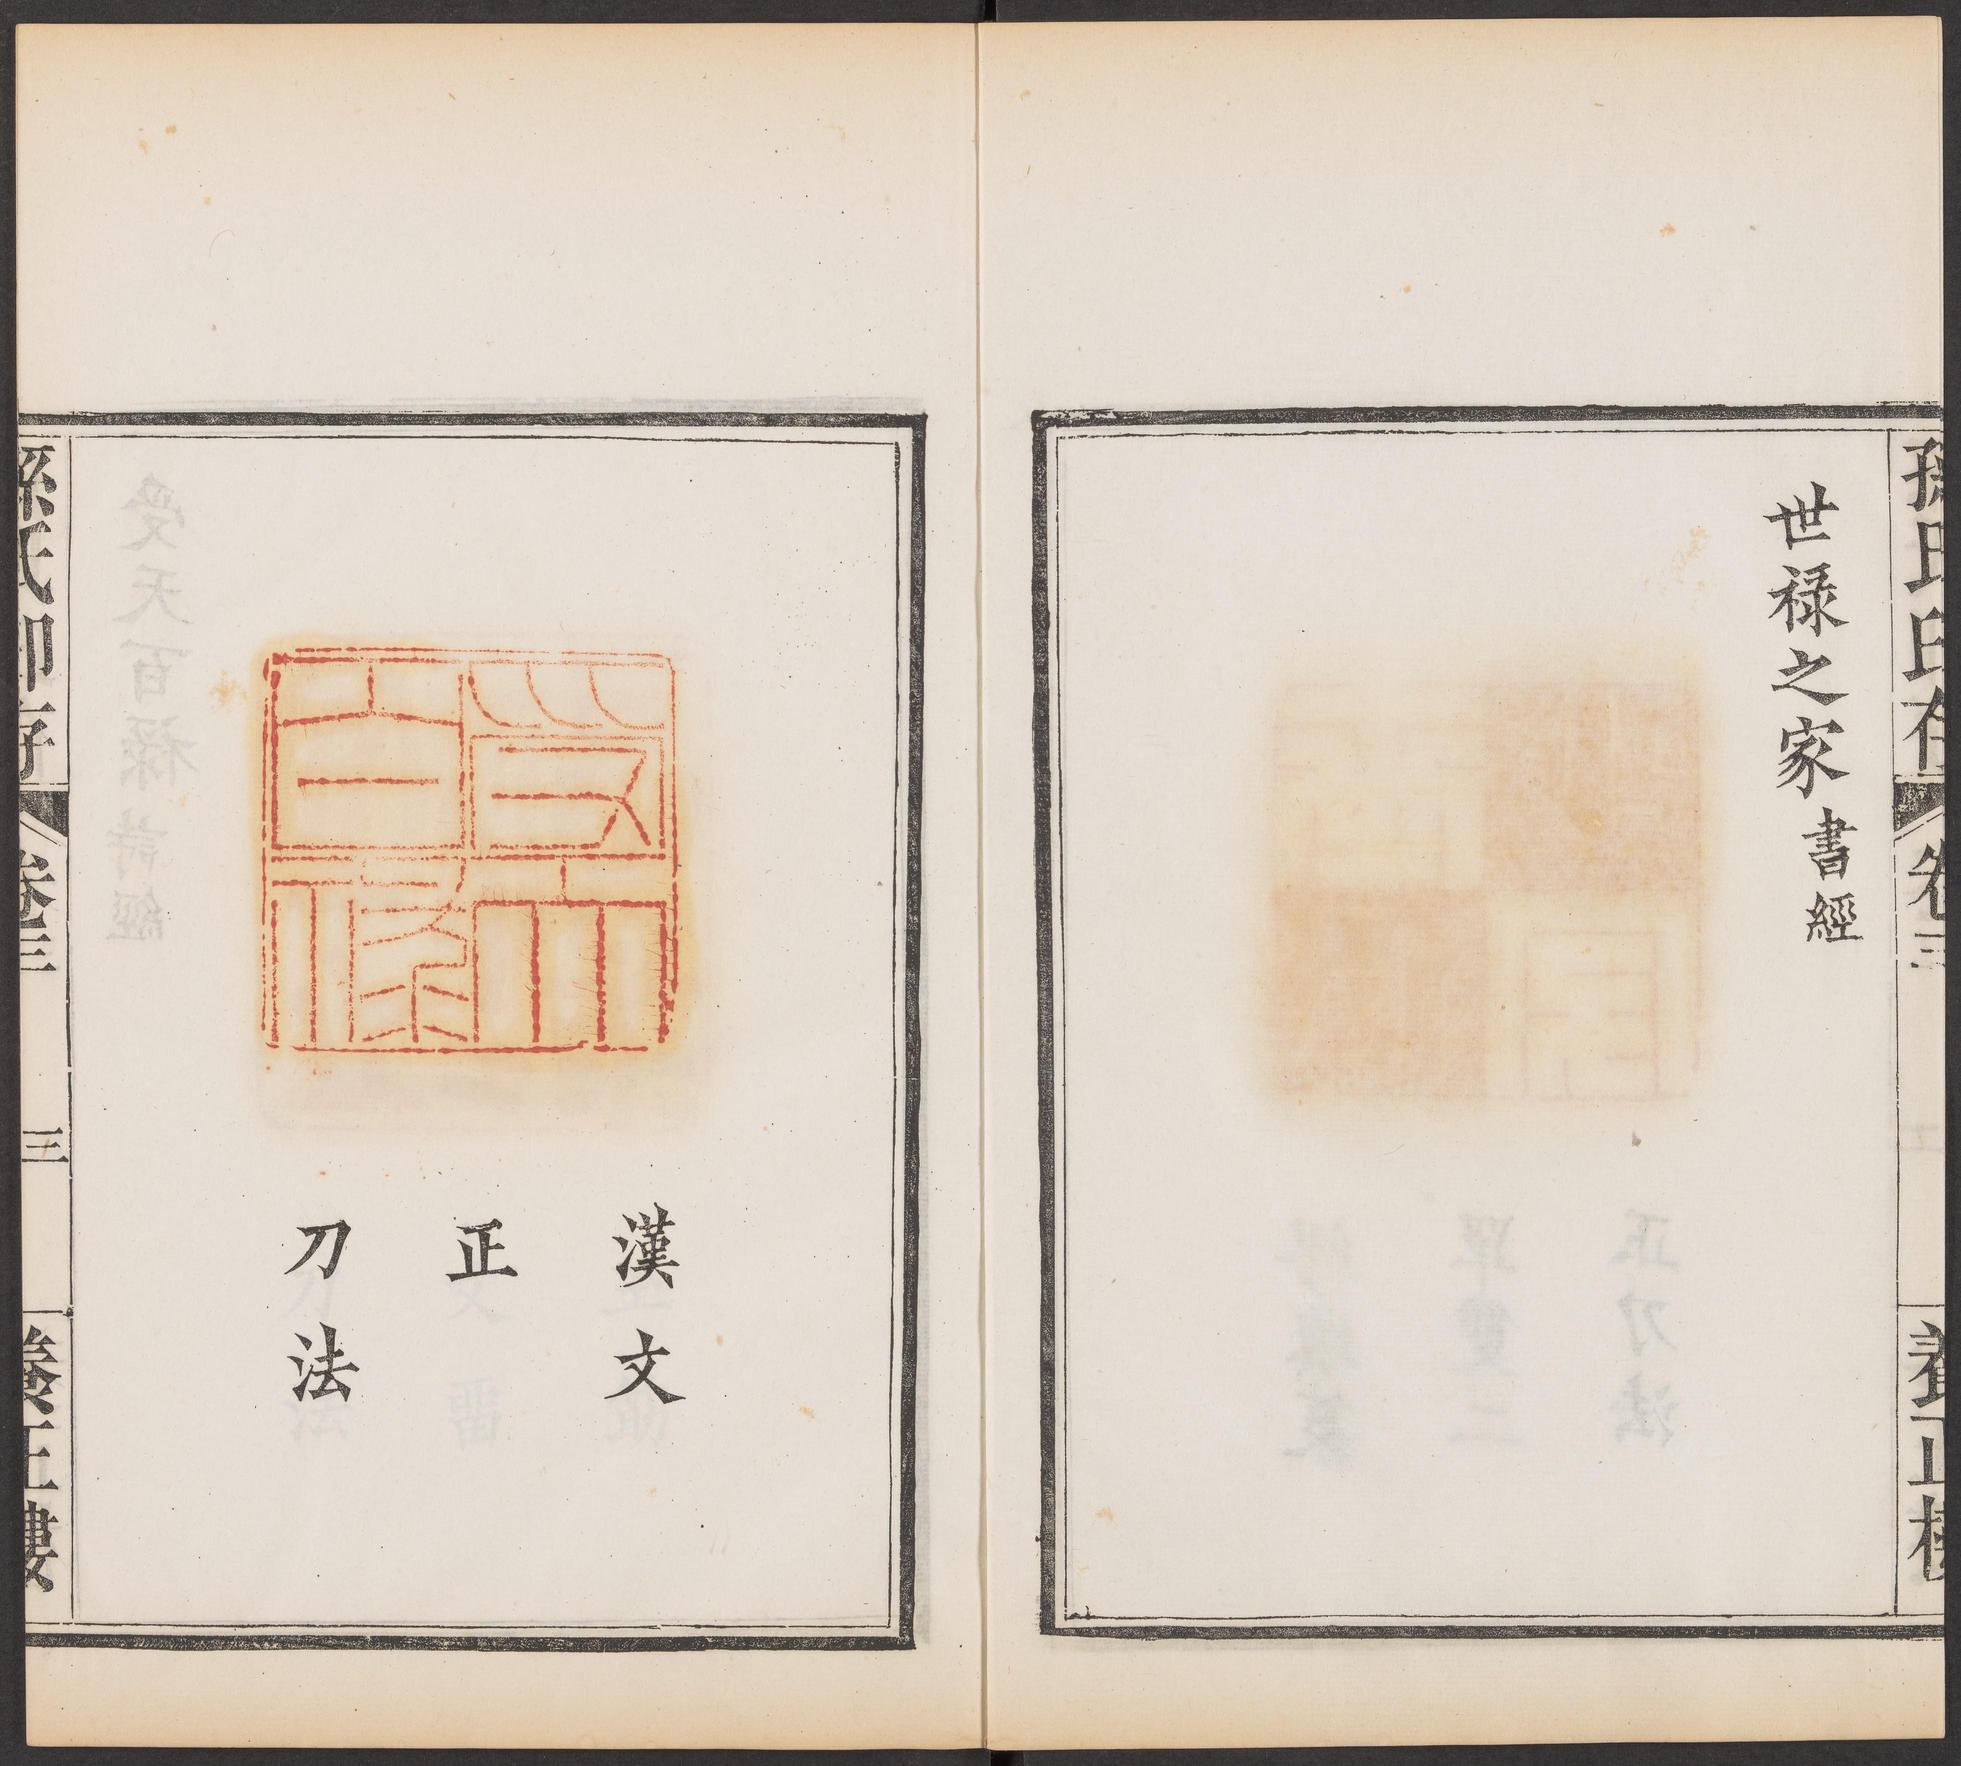 孫氏印存
卷三
養正樓
世祿之家 書經
受天百祿
漢文
正
刀法
孫氏印存
卷三
三
養正樓